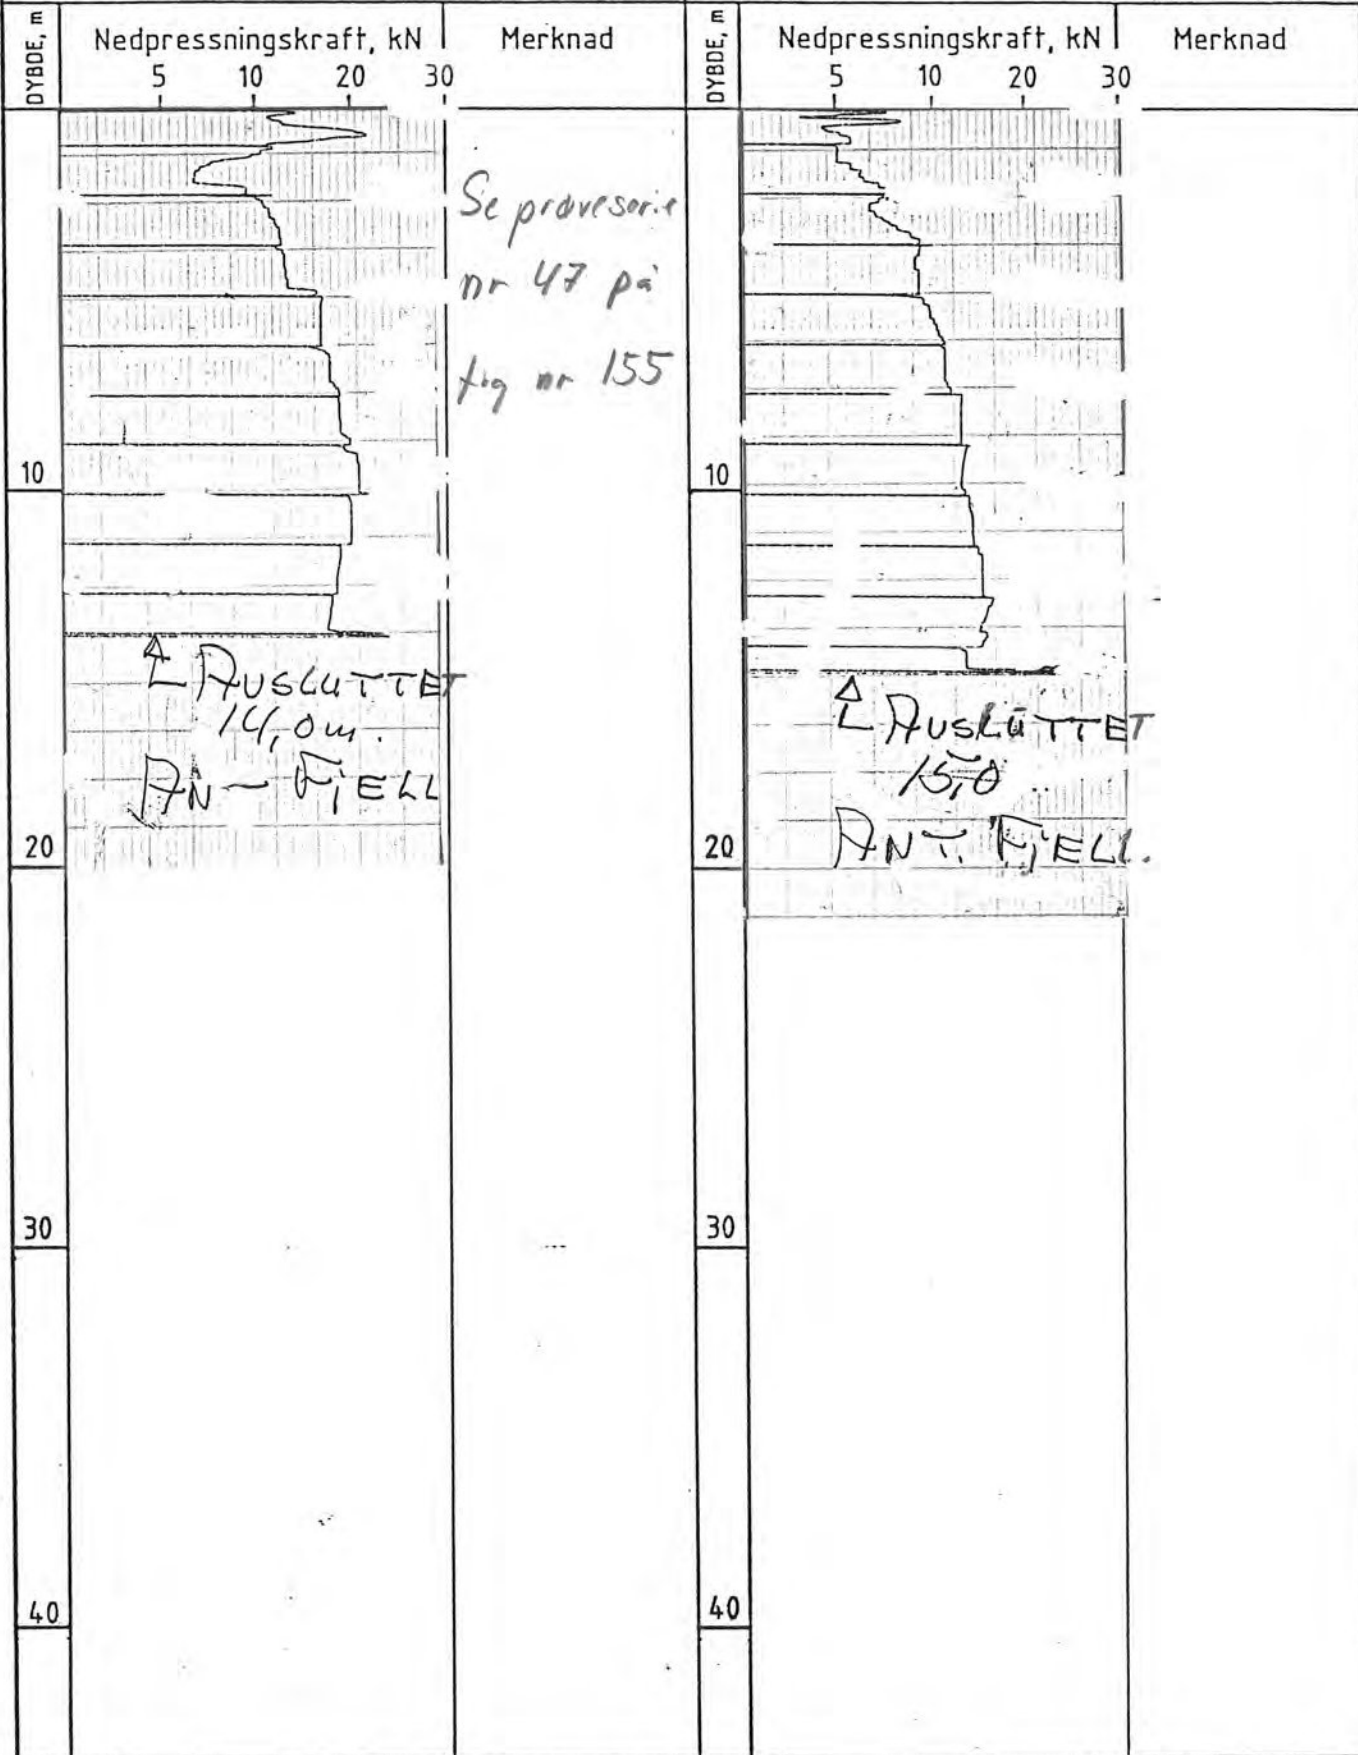 DYBDE, m
Nedpressningskraft, kN
Merknad
5 10 20 30
Se prøveserie
nr 47 på
fig nr 155
10
AVSLUTTET
14,0 m.
AN ~ FJELL
20
30
40
DYBDE, m
Nedpressningskraft, kN
Merknad
5 10 20 30
10
AVSLUTTET
15,0
ANT. FJELL.
20
30
40